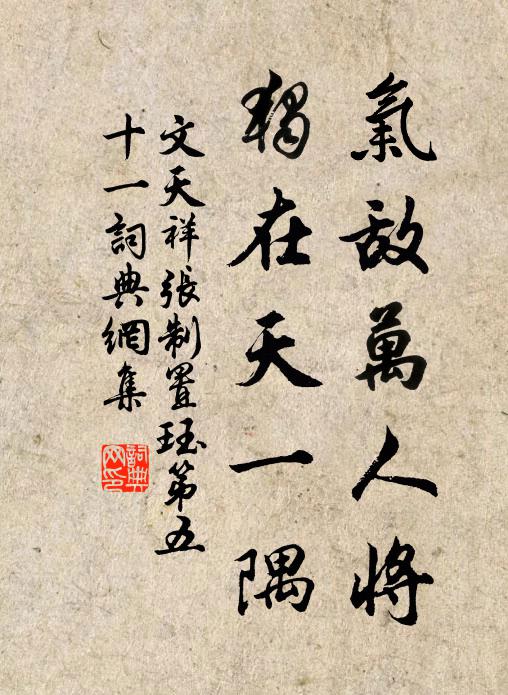 氣敌萬人將
獨在天一隅
文天祥張制置珏第五
十一詞典網集
詞典网印